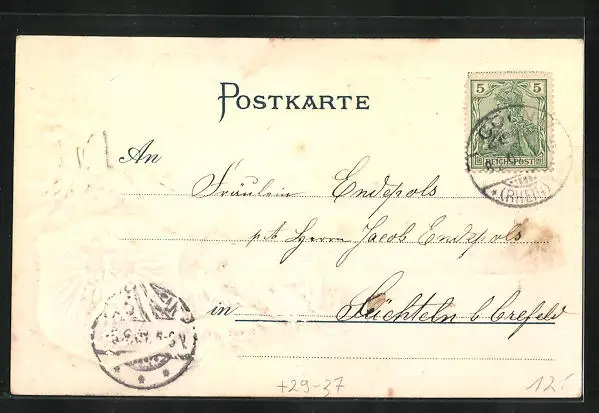 POSTKARTE
5 5
REICHSPOST
(RHEIN)
An
Fräulein Endepols
p.t. Herrn Jacob Endepols
in Süchteln b Crefeld
+29-37
12.-